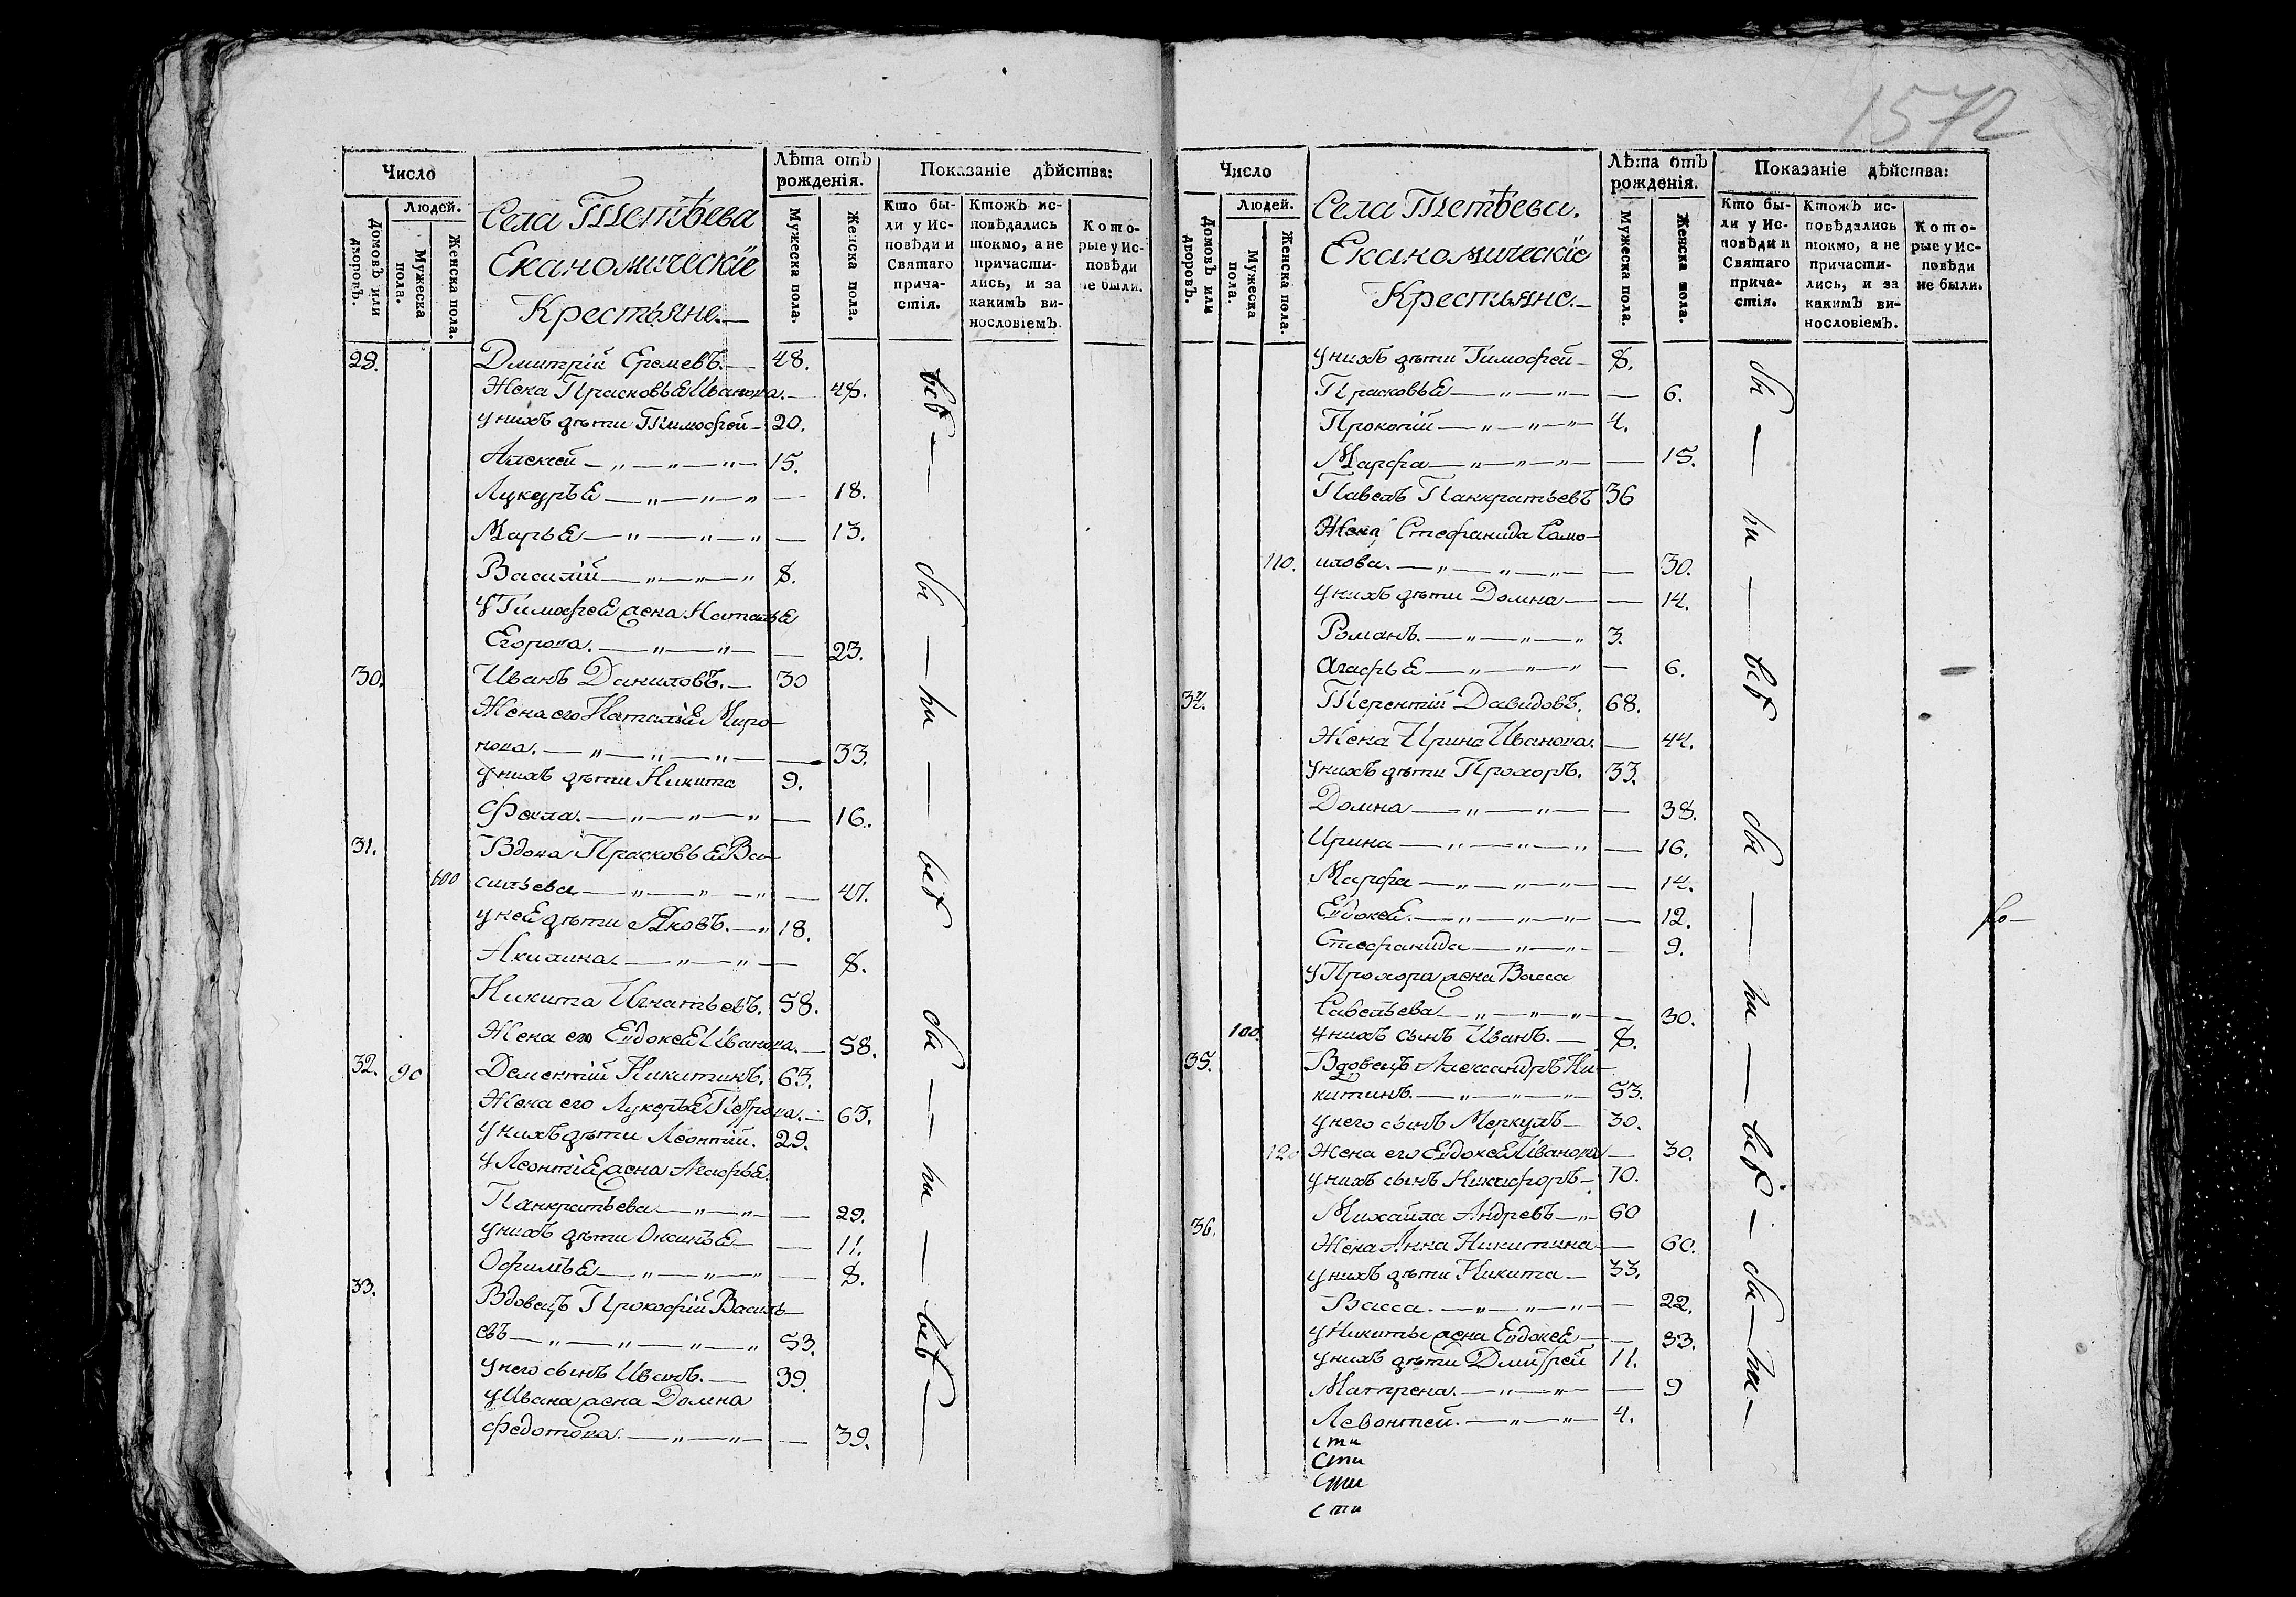 1572
Число
Лѣта отъ рожденія.
Показаніе дѣйства:
Домовъ или дворовъ.
Людей.
Мужеска пола.
Женска пола.
Села Тетѣева
Еканомическїе
Крестьяне.—
Мужеска пола.
Женска пола.
Кто были у Исповѣди и Святаго причастія.
Ктожъ исповѣдались токмо, а не причастились, и за какимъ винословіемъ.
Которые у Исповѣди не были.
29. Дмитрій Еремевъ.— 48.
Жена Прасковья Иванова.— 48.
у нихъ дѣти Тимофей— 20.
Алексей — „ — „ — „ — 15.
Лукерья — „ — „ — „ — 18.
Марья — „ — „ — „ — 13.
Василій — „ — „ — „ 8.
у Тимофея жена Наталья
Егорова. — „ — „ — — 23.
30. Иванъ Даниловъ.— 30
Жена его Наталія Миро-
нова. — „ — „ — „ — — 33.
у нихъ дѣти Никита 9.
Фекла. — „ — „ — „ — 16.
31. Вдова Прасковья Ва-
100 сильева — „ — „ — „ — 47.
у неё дѣти Яковъ. — „ 18.
Акилина. — „ — „ — 8.
Никита Игнатьевъ. 58.
Жена его Евдокея Иванова.— 58.
32. 90 Дементій Никитинъ. 63.
Жена его Лукерья Петрова.— 63.
у нихъ дѣти Леонтій. 29.
у Леонтія жена Агафья
Панкратьева — „ — „ — — 29.
у нихъ дѣти Оксинья — — 11.
Офимья — „ — „ — „ — 8.
33. Вдовецъ Прокофій Василь-
евъ — „ — „ — „ — „ 53.
у него сынъ Иванъ. — 39.
у Ивана жена Домна
Федотова. — „ — „ — — 39.
всѣ — бы — ли — всѣ — бы — ли — всѣ —
Число
Лѣта отъ рожденія.
Показаніе дѣйства:
Домовъ или дворовъ.
Людей.
Мужеска пола.
Женска пола.
Села Тетѣева.
Еканомическїе
Крестьяне.—
Мужеска пола.
Женска пола.
Кто были у Исповѣди и Святаго причастія.
Ктожъ исповѣдались токмо, а не причастились, и за какимъ винословіемъ.
Которые у Исповѣди не были.
у нихъ дѣти Тимофей— 8.
Прасковья — „ — „ — — 6.
Прокопій — „ — „ — „ — 4.
Марфа — „ — „ — „ — — 15.
Павелъ Панкратьевъ 36
Жена Стефанида Само-
110. илова. — „ — „ — „ — — 30.
у нихъ дѣти Домна — — 14.
Романъ. — „ — „ — „ 3.
Агафья — „ — „ — „ — 6.
34. Терентій Давидовъ. 68.
Жена Ирина Иванова. — 44.
у нихъ дѣти Прохоръ. 33.
Домна — „ — „ — — 38.
Ирина — „ — „ — „ — 16.
Марфа — „ — „ — „ — — 14.
Евдокея. — „ — „ — „ — — 12.
Стефанида — „ — „ — — 9.
у Прохора жена Васса
Савельева — „ — „ — „ — 30.
100. у нихъ сынъ Иванъ. — 8.
35. Вдовецъ Александръ Ни-
китинъ. — „ — „ — „ — 53.
у него сынъ Меркулъ — 30.
120 Жена его Евдокея Иванова — 30.
у нихъ сынъ Никифоръ — 10.
36. Михайла Андревъ — „ — 60
Жена Анна Никитина — 60.
у нихъ дѣти Никита — 33.
Васса. — „ — „ — „ — 22.
у Никиты жена Евдокея — 33.
у нихъ дѣти Дмитрей 11.
Матрена. — „ — „ — — 9
Левонтей. — „ — „ — 4.
сти
сти
сти
сти
бы — ли — всѣ — бы — ли — всѣ — бы — ли —